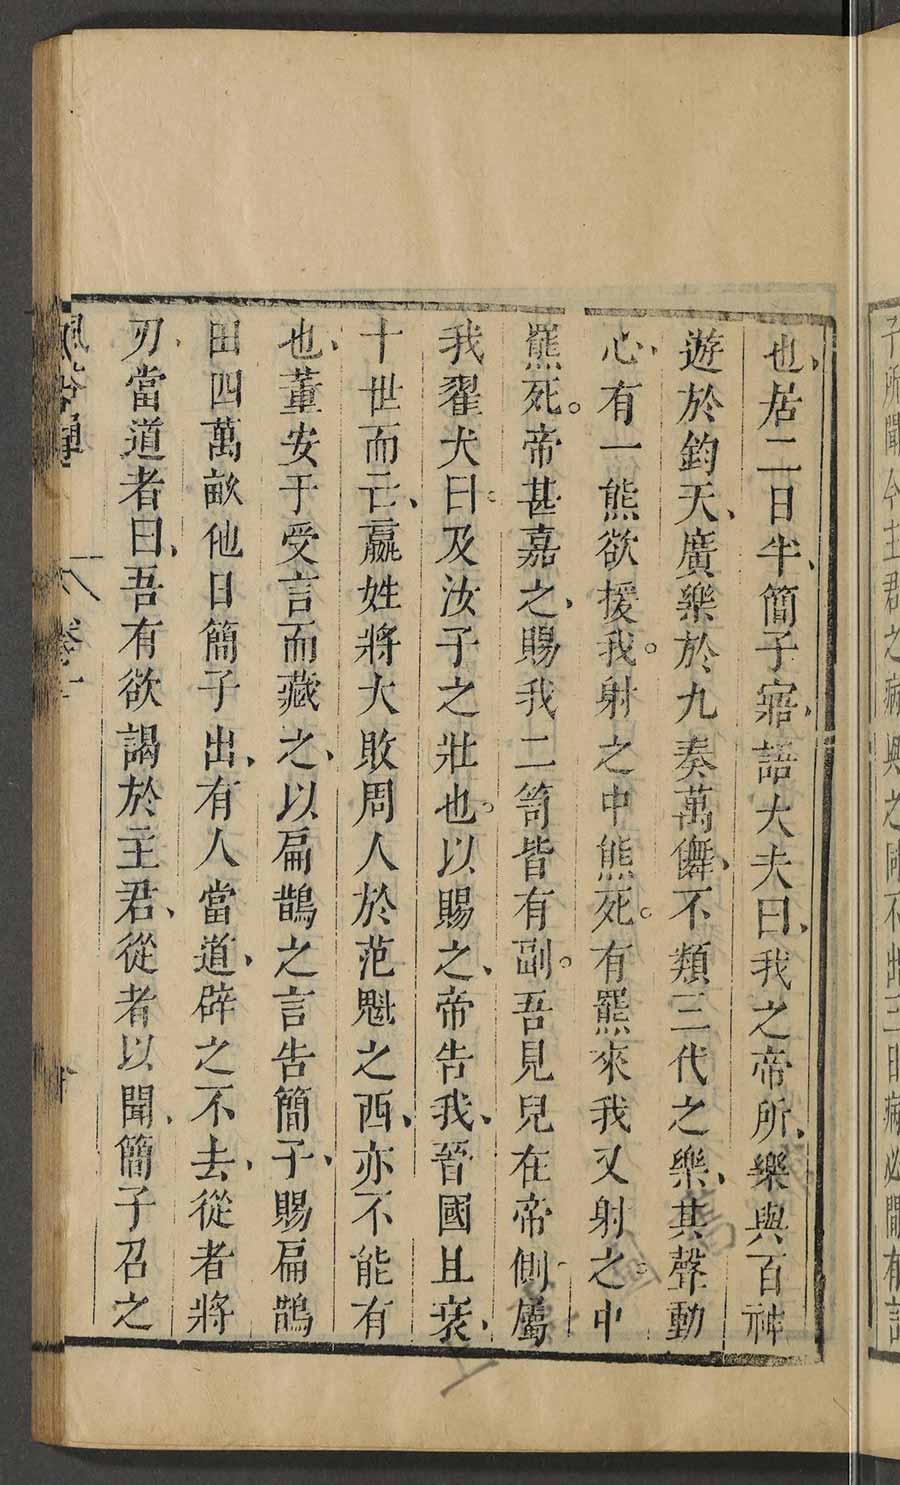 子所聞今主君之病與之同不出三日病必閒有
也、居二日半、簡子寤、語大夫曰、我之帝所、樂與百神
遊於鈞天、廣樂於九奏萬儛、不類三代之樂、其聲動
心、有一熊欲援我。射之中熊死。有羆來我又射之中
羆死。帝甚嘉之、賜我二笥皆有副。吾見兒在帝側屬
我翟犬曰。及汝子之壯也。以賜之、帝告我、晉國且衰、
十世而亡、嬴姓將大敗周人於范魁之西、亦不能有
也、董安于受言而藏之、以扁鵲之言告簡子、賜扁鵲
田四萬畝他日簡子出、有人當道、辟之不去、從者將
刃、當道者曰、吾有欲謁於主君、從者以聞、簡子召之
風俗通 卷一